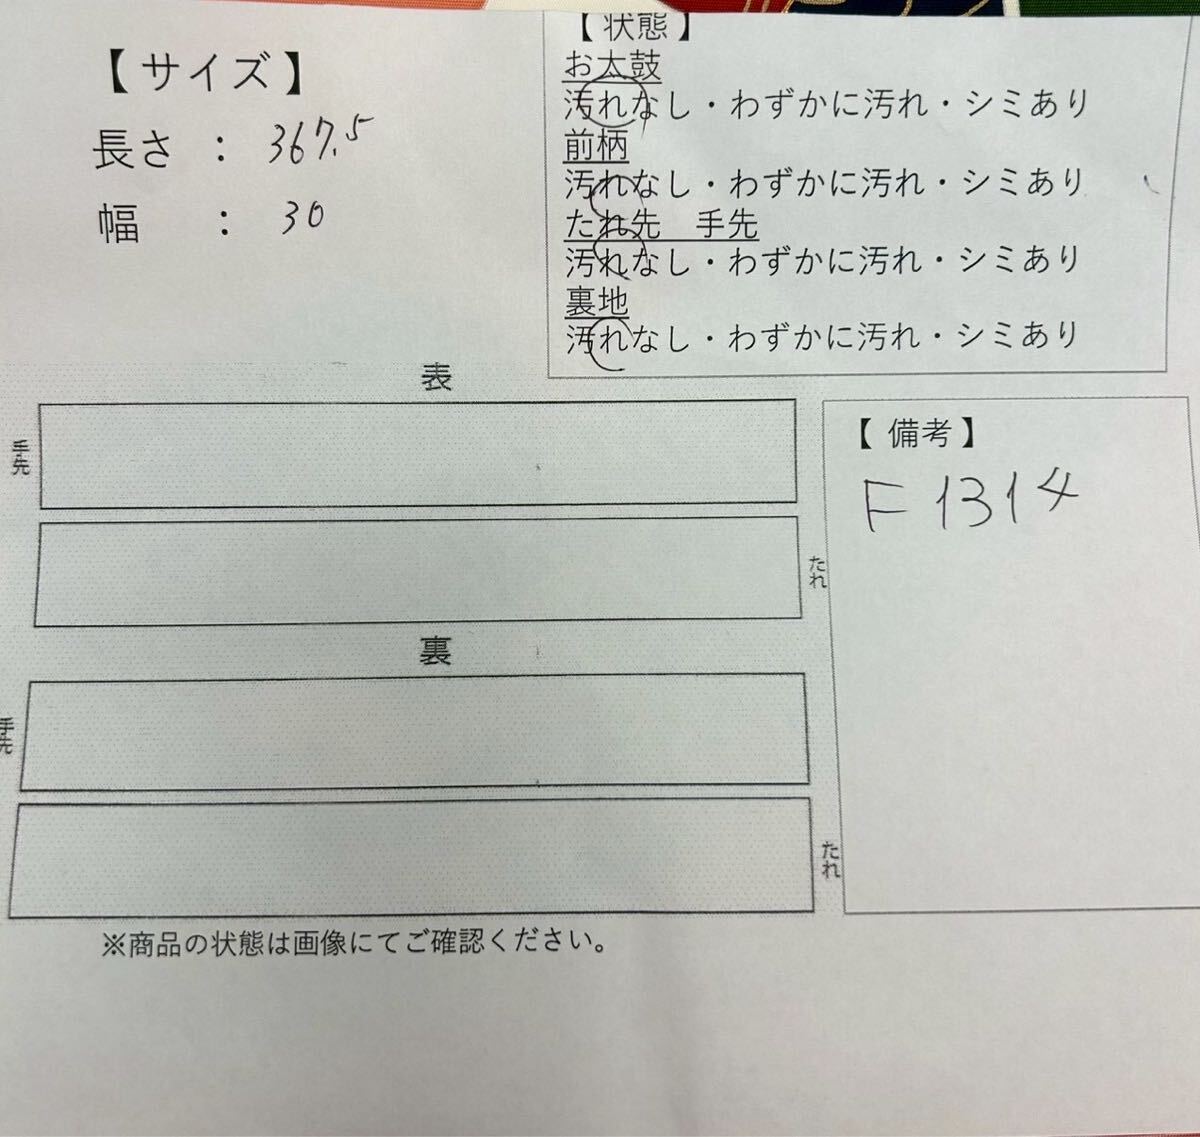 【サイズ】
長さ ： 367.5
幅 ： 30
【状態】
お太鼓
汚れなし・わずかに汚れ・シミあり
前柄
汚れなし・わずかに汚れ・シミあり
たれ先 手先
汚れなし・わずかに汚れ・シミあり
裏地
汚れなし・わずかに汚れ・シミあり
表
手先
たれ
裏
手先
たれ
【備考】
F1314
※商品の状態は画像にてご確認ください。